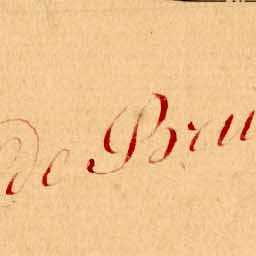 de Bru